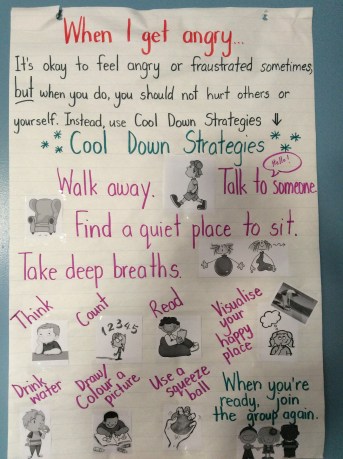 When I get angry...
It's okay to feel angry or fraustrated sometimes,
but when you do, you should not hurt others or
yourself. Instead, use Cool Down Strategies ↓
** Cool Down Strategies **
Hello!
Walk away. Talk to someone.
Find a quiet place to sit.
Take deep breaths.
Think
Count
1 2 3 4 5
Read
Visualise
your
happy
place
Drink
water
Draw/
Colour a
picture
Use a
squeeze
ball
When you're
ready, join
the group again.